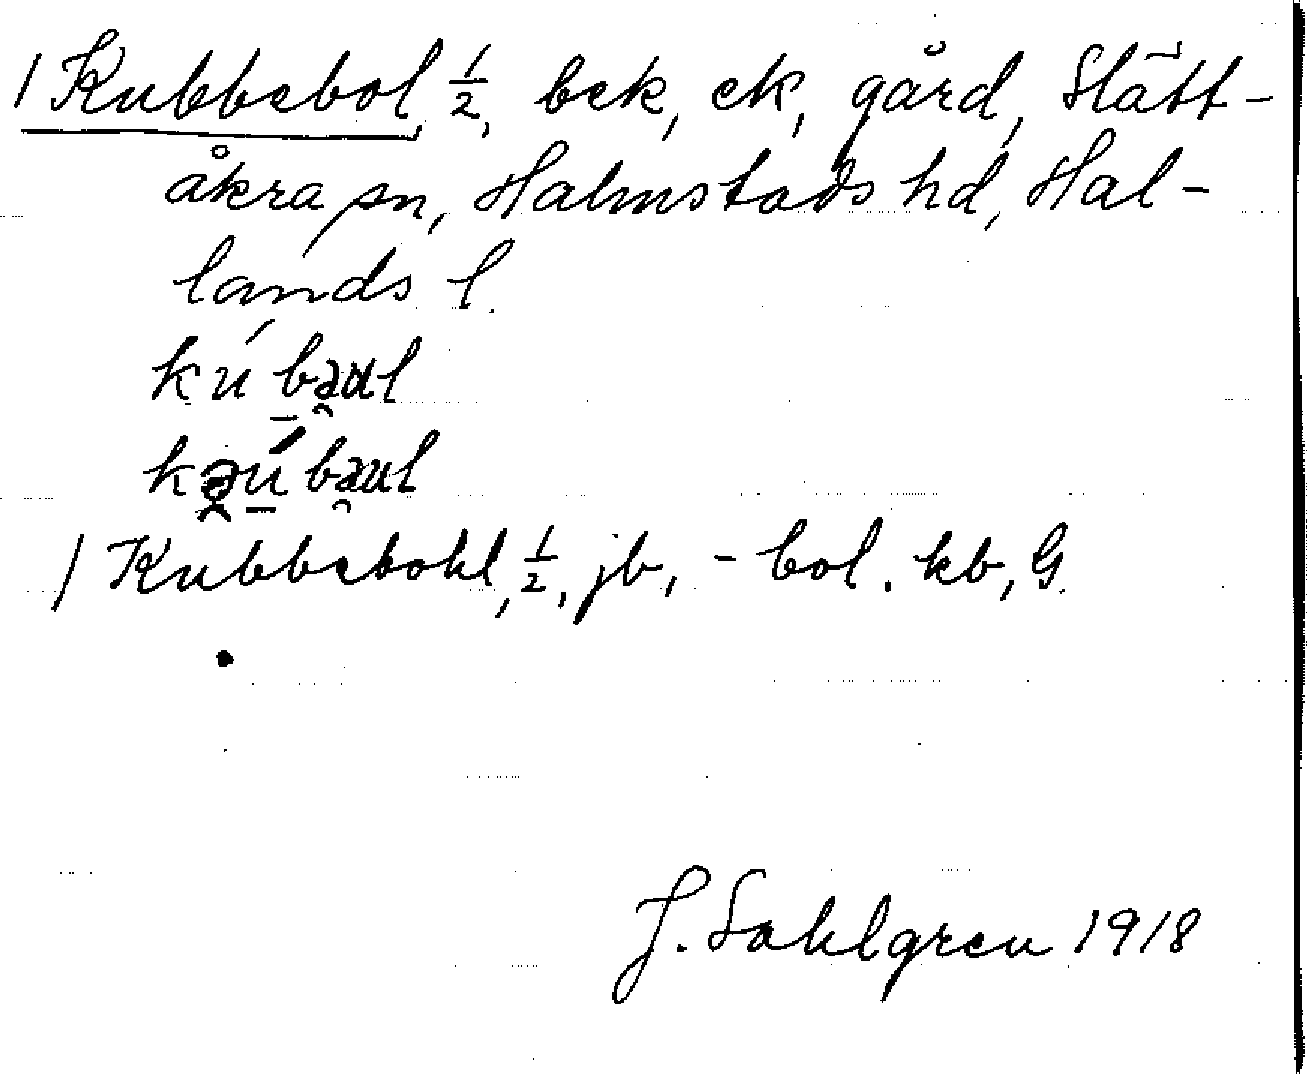 / Kubbebol, ½, bek, ek, gård, Slätt-
åkra sn, Halmstads hd, Hal-
lands l.
kú b̠ə̯ul
kə̯ú̠ bə̯ul
/ Kubbebohl, ½, jb, - bol. kb, G.
J. Sahlgren 1918